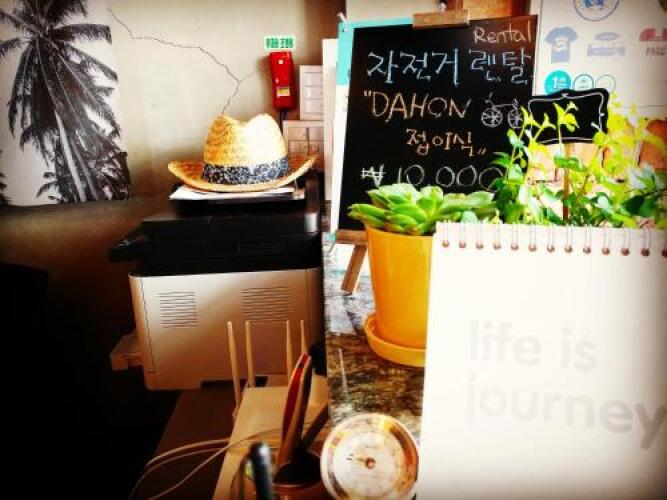 Rental
자전거 렌탈
"DAHON
접이식"
₩10,000
life is
journey